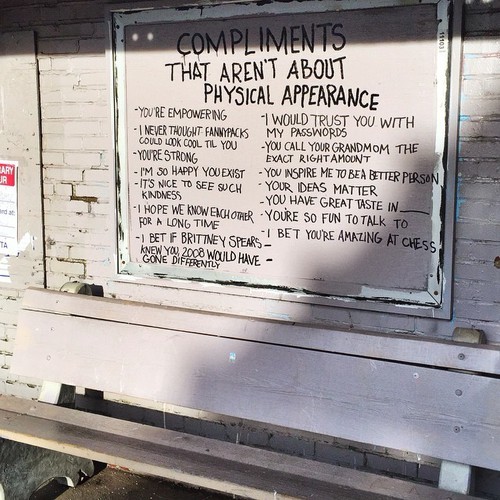 COMPLIMENTS
THAT AREN'T ABOUT
PHYSICAL APPEARANCE
-YOU'RE EMPOWERING
-I NEVER THOUGHT FANNYPACKS
COULD LOOK COOL TIL YOU
-YOU'RE STRONG
-I'M SO HAPPY YOU EXIST
-IT'S NICE TO SEE SUCH
KINDNESS
-I HOPE WE KNOW EACH OTHER
FOR A LONG TIME
-I BET IF BRITTNEY SPEARS
KNEW YOU, 2008 WOULD HAVE
GONE DIFFERENTLY
-I WOULD TRUST YOU WITH
MY PASSWORDS
-YOU CALL YOUR GRANDMOM THE
EXACT RIGHT AMOUNT
-YOU INSPIRE ME TO BE A BETTER PERSON
-YOUR IDEAS MATTER
-YOU HAVE GREAT TASTE IN ____
-YOU'RE SO FUN TO TALK TO
-I BET YOU'RE AMAZING AT CHESS
-